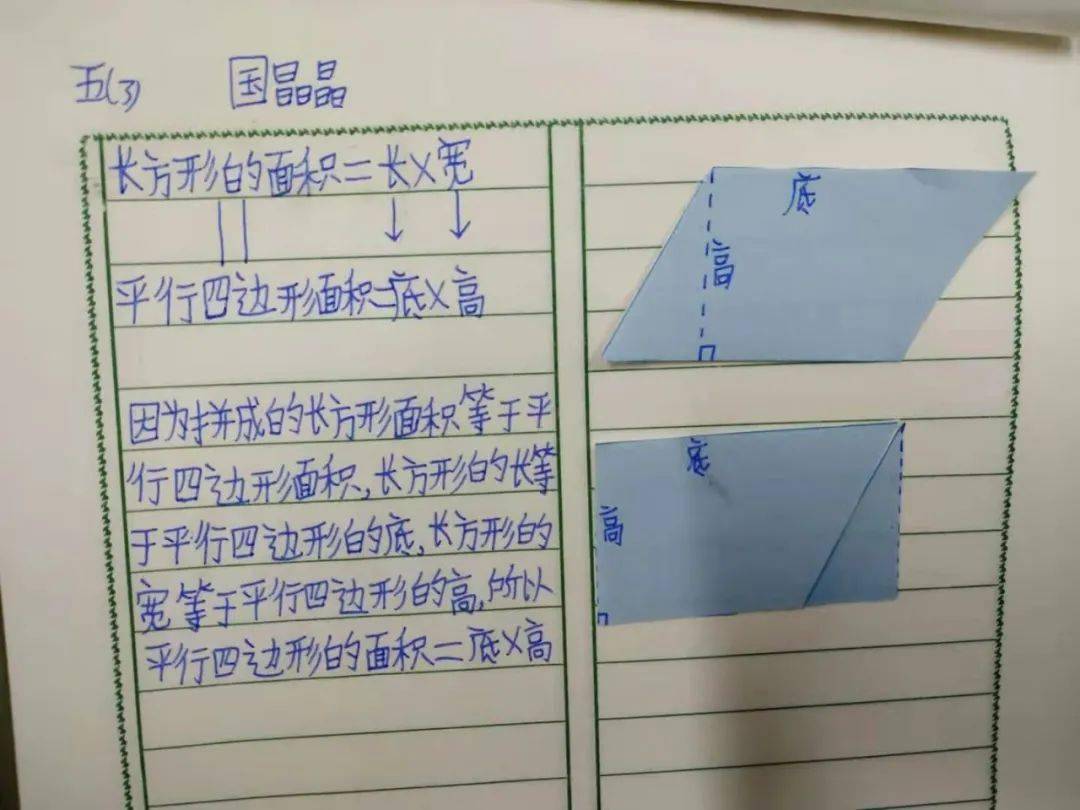 五(3) 国晶晶
长方形的面积=长×宽
平行四边形面积=底×高
因为拼成的长方形面积等于平
行四边形面积,长方形的长等
于平行四边形的底,长方形的
宽等于平行四边形的高,所以
平行四边形的面积=底×高
底
高
底
高